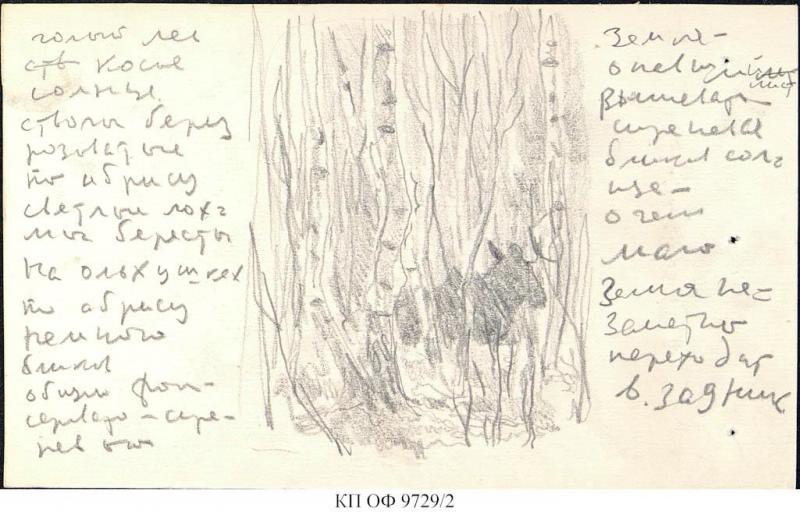 голый лес
есть косые
солнце.
стволы берез
розоватые
по абрису
светлые лохъ
мы бересты
на ольхушках
по абрису
немного
блики
общий фон-
серовато-сире-
неватый
Земля-
опавший
лист
сиреневая
блики солн
це-
очень
мало
Земля не=
заметно
переходит
в задник
КП ОФ 9729/2